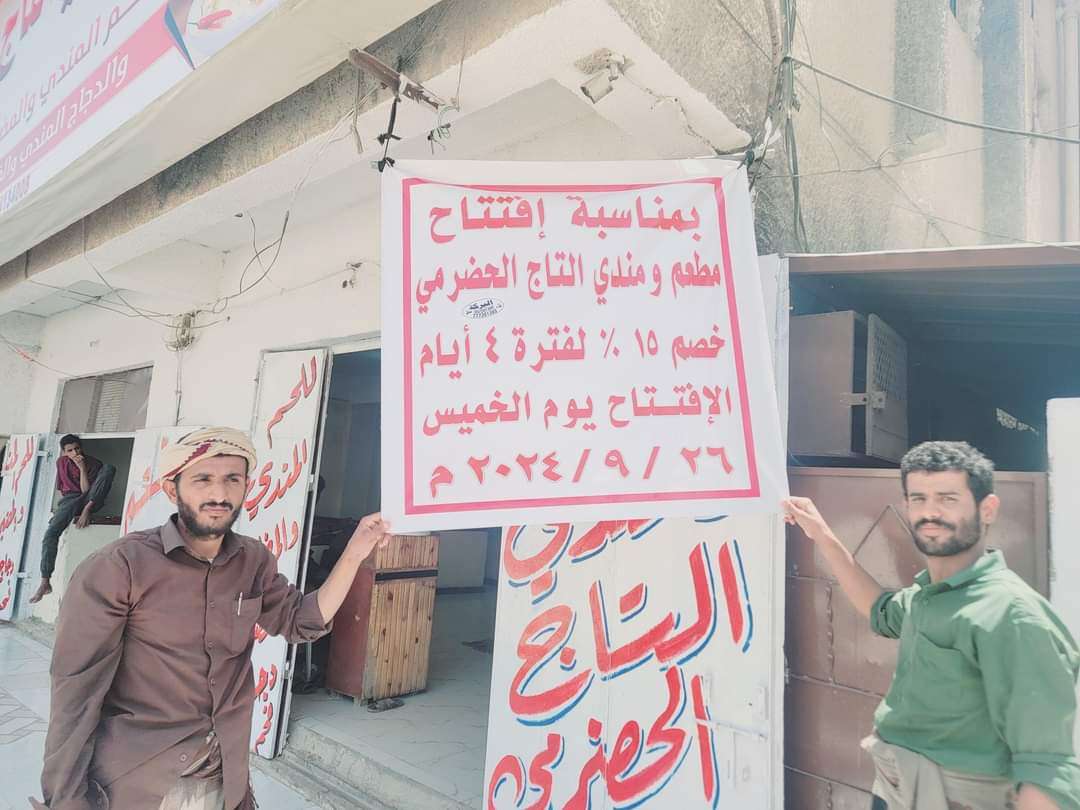 م المندي والمض
والدجاج المندي وال
بمناسبة إفتتاح
مطعم ومندي التاج الحضرمي
البركة
خصم ١٥ ٪ لفترة ٤ أيام
الإفتتاح يوم الخميس
٢٦ / ٩ / ٢٠٢٤ م
للحم
المندي
والم
التاج
الحضرمي
للحم